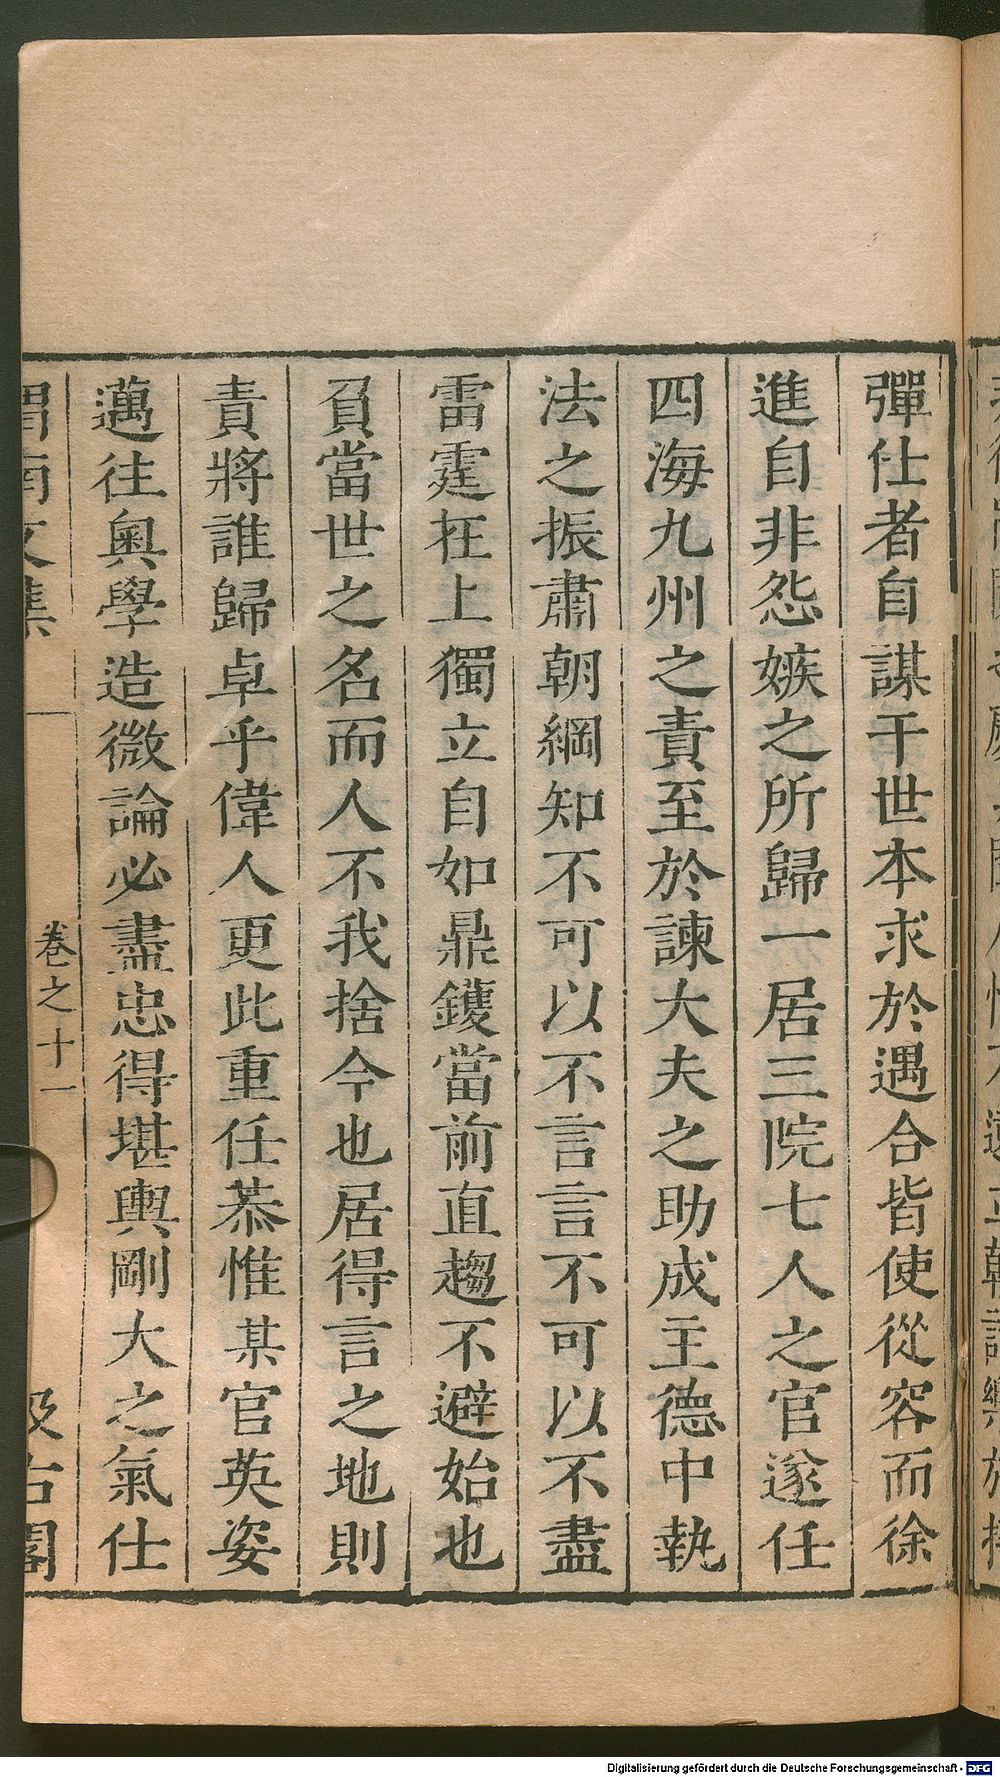 彈仕者自謀干世本求於遇合皆使從容而徐
進自非怨嫉之所歸一居三院七人之官遂任
四海九州之責至於諫大夫之助成主德中執
法之振肅朝綱知不可以不言言不可以不盡
雷霆在上獨立自如鼎鑊當前直趨不避始也
負當世之名而人不我捨今也居得言之地則
責將誰歸卓乎偉人更此重任恭惟某官英姿
邁往奧學造微論必盡忠得堪輿剛大之氣仕
渭南文集 卷之十一 汲古閣
Digitalisierung gefördert durch die Deutsche Forschungsgemeinschaft - DFG